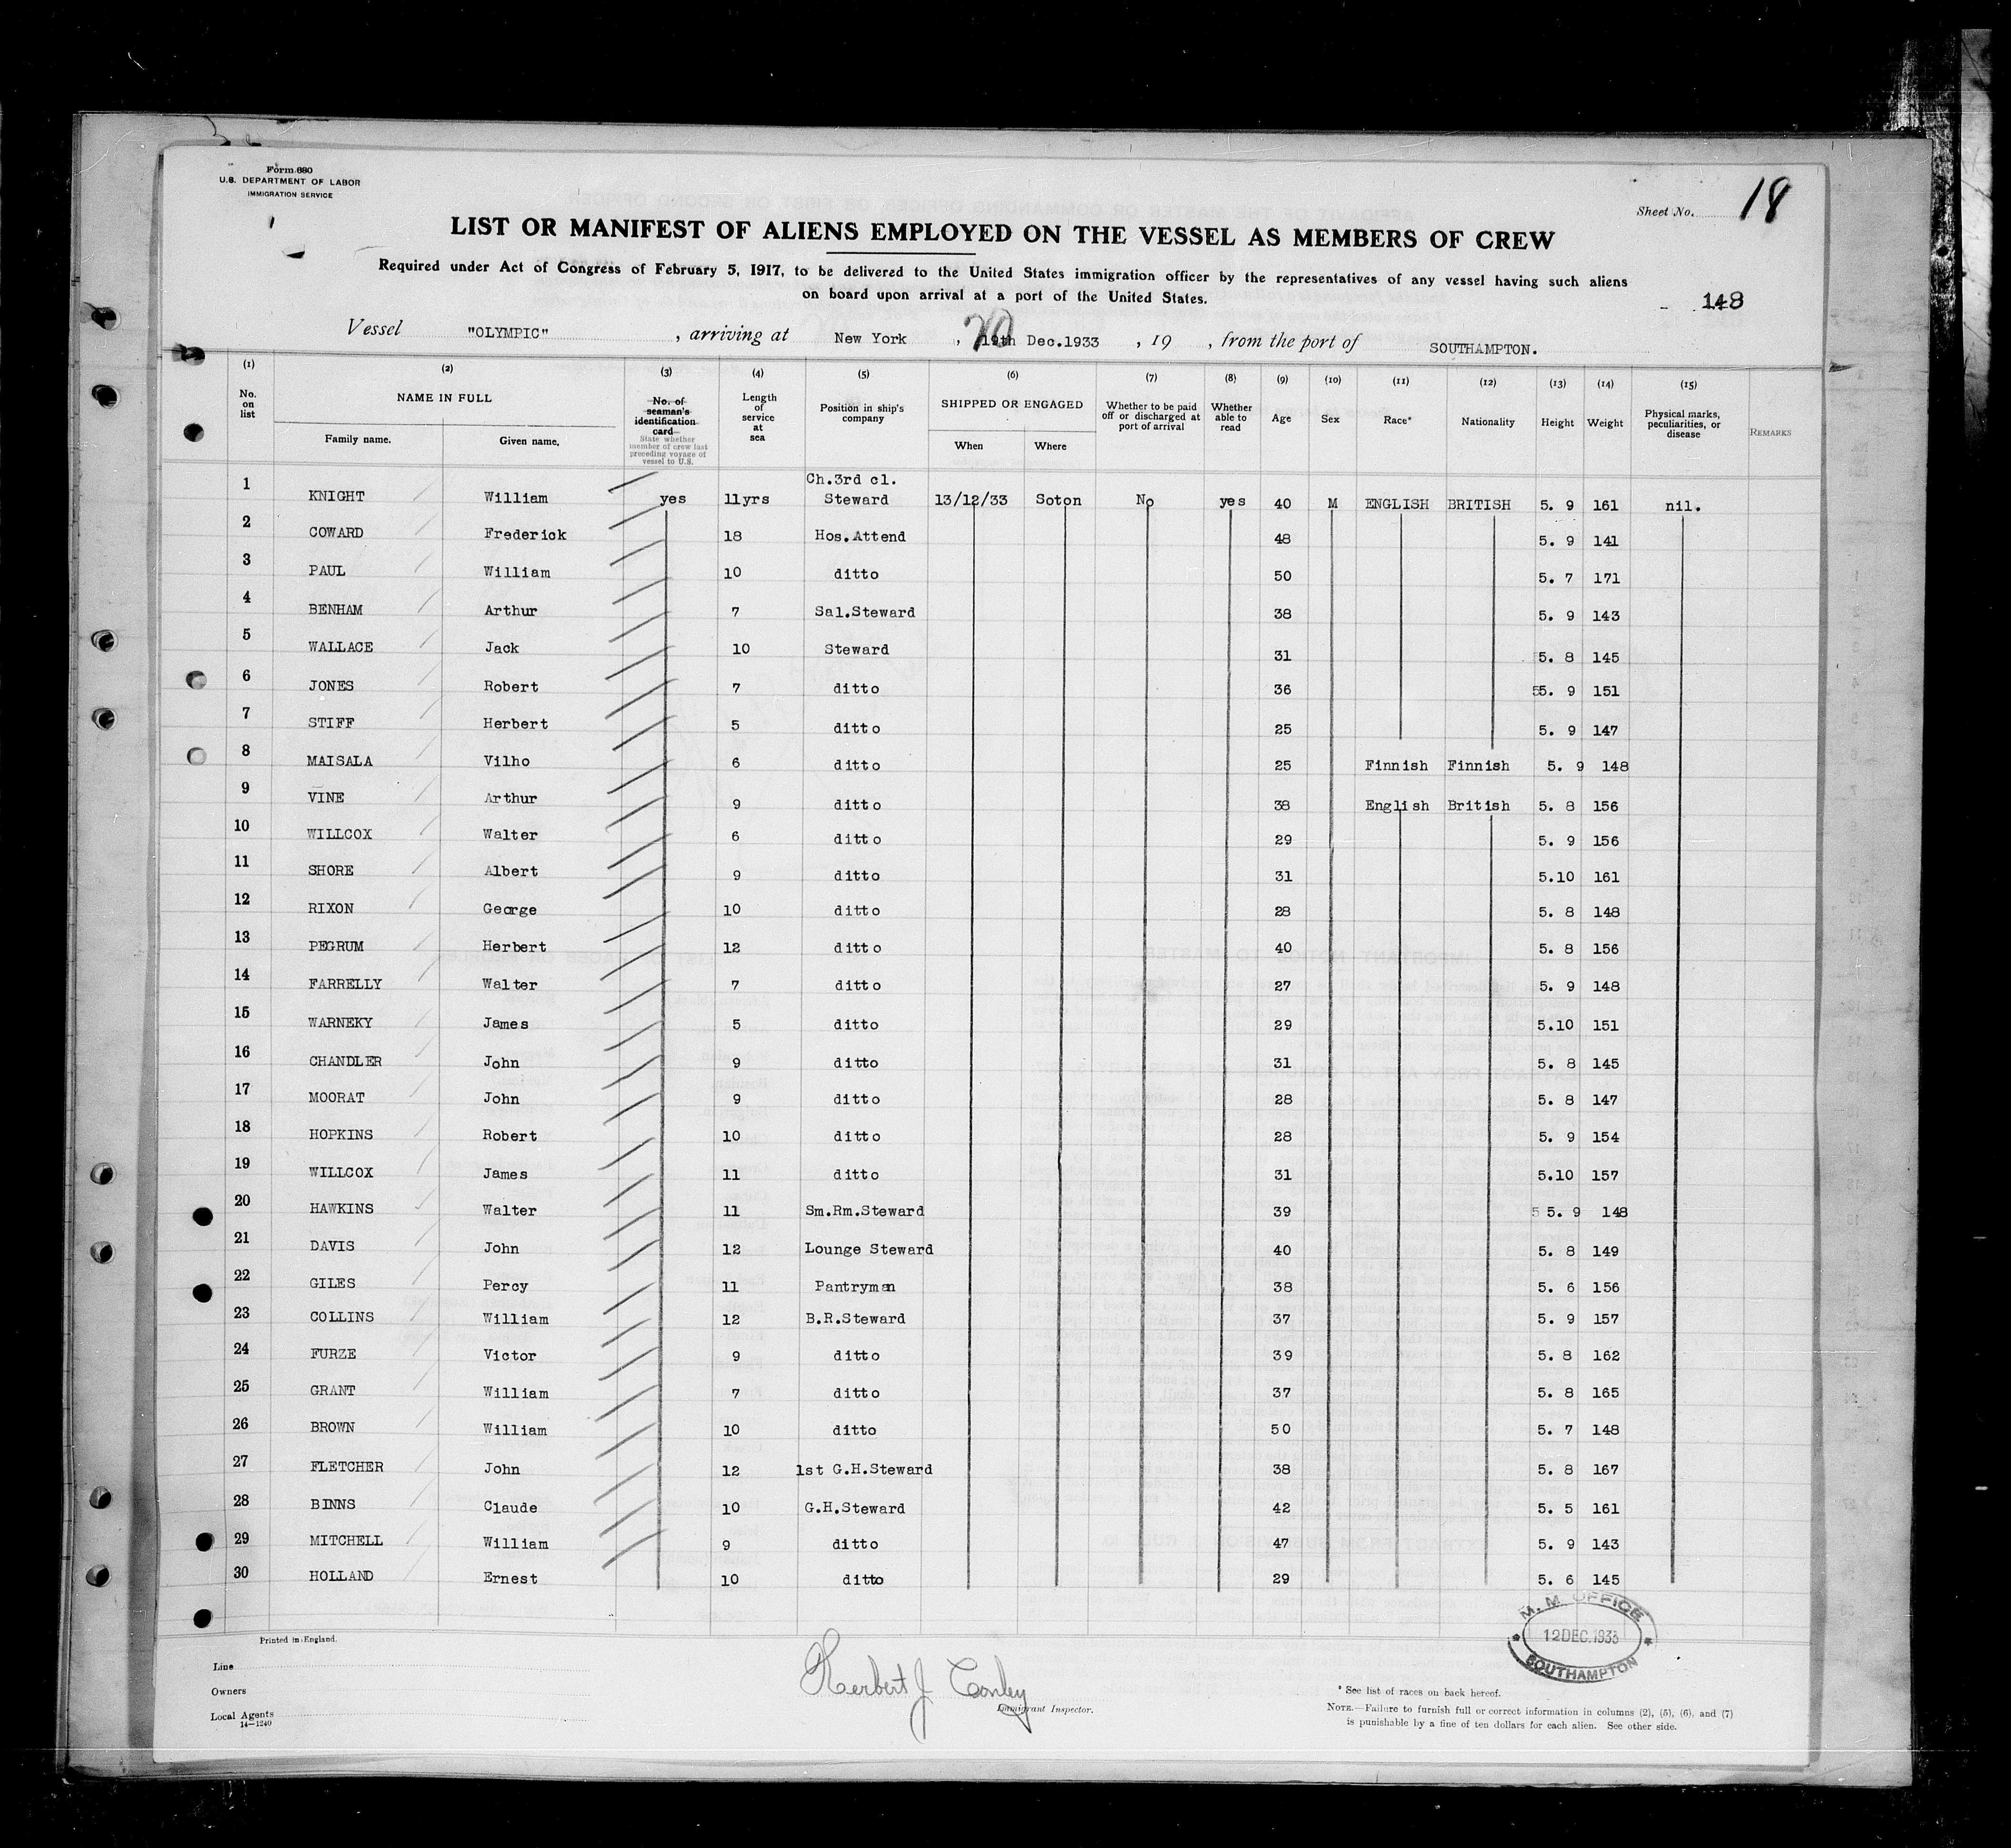 Form 680
U.S. DEPARTMENT OF LABOR
IMMIGRATION SERVICE
Sheet No. 18
LIST OR MANIFEST OF ALIENS EMPLOYED ON THE VESSEL AS MEMBERS OF CREW
Required under Act of Congress of February 5, 1917, to be delivered to the United States immigration officer by the representatives of any vessel having such aliens
on board upon arrival at a port of the United States.
148
Vessel "OLYMPIC", arriving at New York, 19th 20 Dec.1933, 19 , from the port of SOUTHAMPTON.
(1) (2) (3) (4) (5) (6) (7) (8) (9) (10) (11) (12) (13) (14) (15)
No. on list
NAME IN FULL
Family name. Given name.
No. of seaman's identification card
State whether member of crew last preceding voyage of vessel to U.S.
Length of service at sea
Position in ship's company
SHIPPED OR ENGAGED
When Where
Whether to be paid off or discharged at port of arrival
Whether able to read
Age
Sex
Race*
Nationality
Height
Weight
Physical marks, peculiarities, or disease
REMARKS
1 KNIGHT William yes 11yrs Ch.3rd cl. Steward 13/12/33 Soton No yes 40 M ENGLISH BRITISH 5. 9 161 nil.
2 COWARD Frederick 18 Hos.Attend 48 5. 9 141
3 PAUL William 10 ditto 50 5. 7 171
4 BENHAM Arthur 7 Sal.Steward 38 5. 9 143
5 WALLACE Jack 10 Steward 31 5. 8 145
6 JONES Robert 7 ditto 36 55. 9 151
7 STIFF Herbert 5 ditto 25 5. 9 147
8 MAISALA Vilho 6 ditto 25 Finnish Finnish 5. 9 148
9 VINE Arthur 9 ditto 38 English British 5. 8 156
10 WILLCOX Walter 6 ditto 29 5. 9 156
11 SHORE Albert 9 ditto 31 5.10 161
12 RIXON George 10 ditto 28 5. 8 148
13 PEGRUM Herbert 12 ditto 40 5. 8 156
14 FARRELLY Walter 7 ditto 27 5. 9 148
15 WARNEKY James 5 ditto 29 5.10 151
16 CHANDLER John 9 ditto 31 5. 8 145
17 MOORAT John 9 ditto 28 5. 8 147
18 HOPKINS Robert 10 ditto 28 5. 9 154
19 WILLCOX James 11 ditto 31 5.10 157
20 HAWKINS Walter 11 Sm.Rm.Steward 39 5 5. 9 148
21 DAVIS John 12 Lounge Steward 40 5. 8 149
22 GILES Percy 11 Pantryman 38 5. 6 156
23 COLLINS William 12 B.R.Steward 37 5. 9 157
24 FURZE Victor 9 ditto 39 5. 8 162
25 GRANT William 7 ditto 37 5. 8 165
26 BROWN William 10 ditto 50 5. 7 148
27 FLETCHER John 12 1st G.H.Steward 38 5. 8 167
28 BINNS Claude 10 G.H.Steward 42 5. 5 161
29 MITCHELL William 9 ditto 47 5. 9 143
30 HOLLAND Ernest 10 ditto 29 5. 6 145
M. M. OFFICE
12 DEC. 1933
SOUTHAMPTON
Printed in England.
Line
Owners
Local Agents
14—1240
Herbert J Conley
Immigrant Inspector.
* See list of races on back hereof.
NOTE.—Failure to furnish full or correct information in columns (2), (5), (6), and (7)
is punishable by a fine of ten dollars for each alien. See other side.